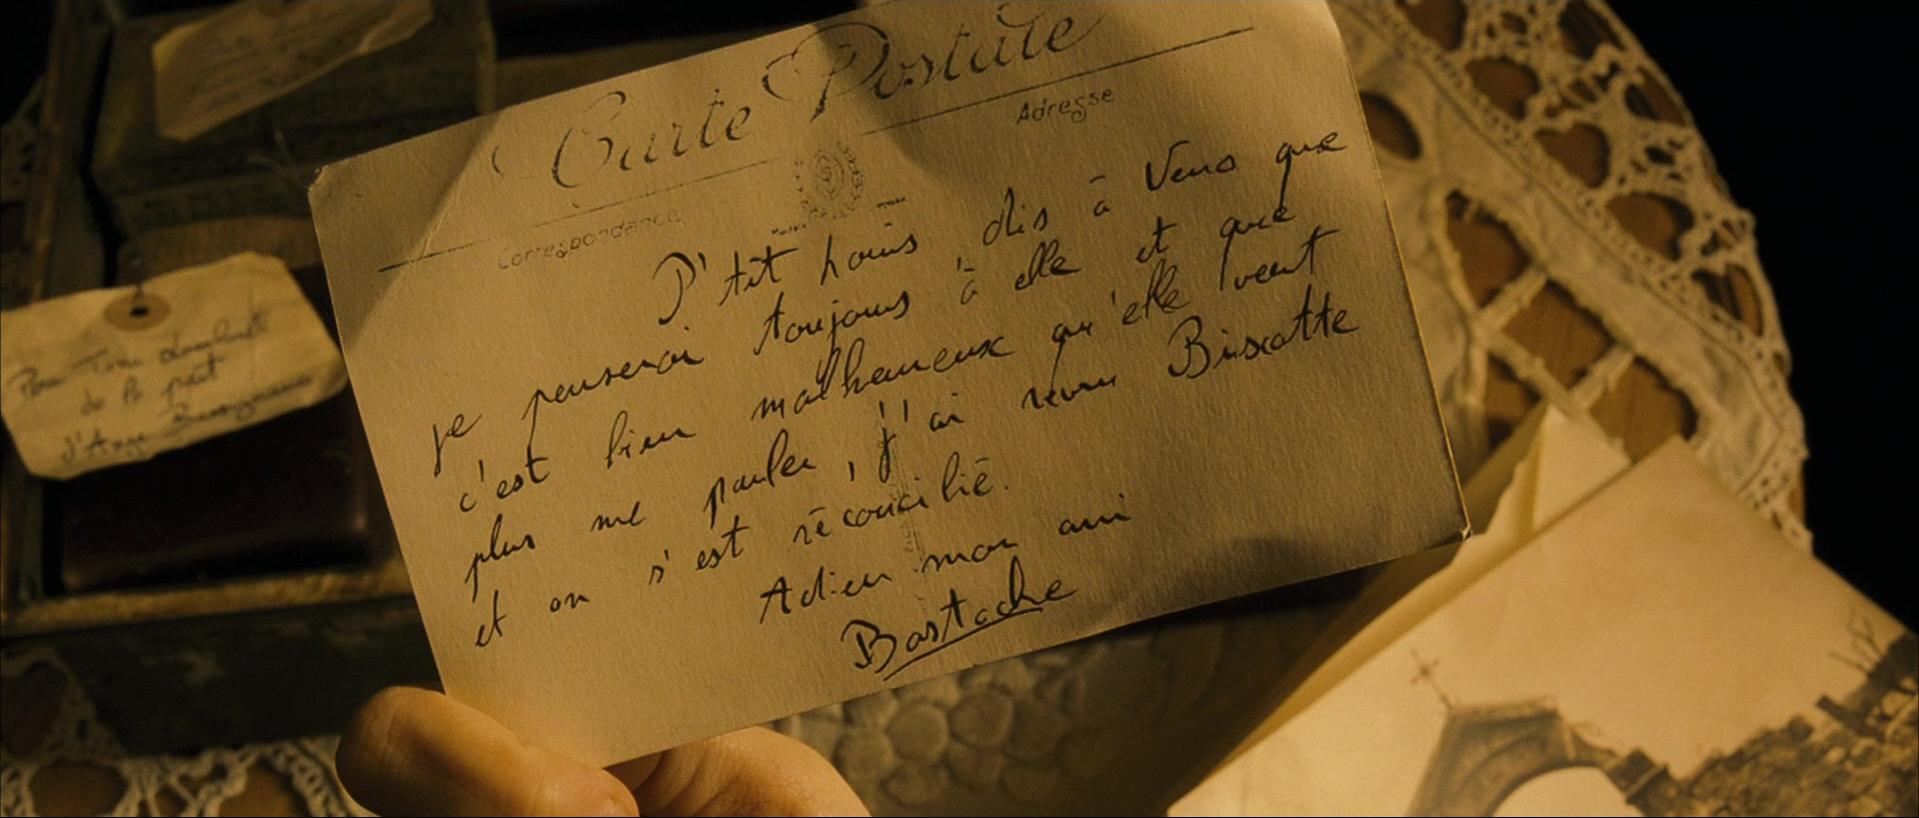 Carte Postale
Correspondance
Adresse
P'tit Louis, dis à Vero que
je penserai toujours à elle et que
c'est bien malheureux qu'elle veut
plus me parler, j'ai revu Biscotte
et on s'est réconcilié.
Adieu mon ami
Bastoche
Pour Tina Lombardi
de la part
d'Ange